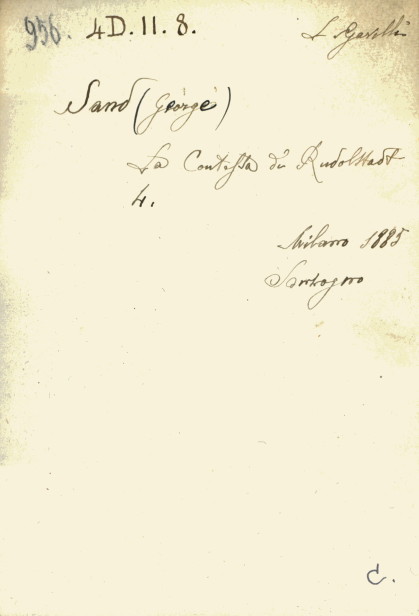 956. 4D. 11. 8.
Sand (George)
La Contessa di Rudolstadt
4.
Milano 1885
Sonzogno
C.